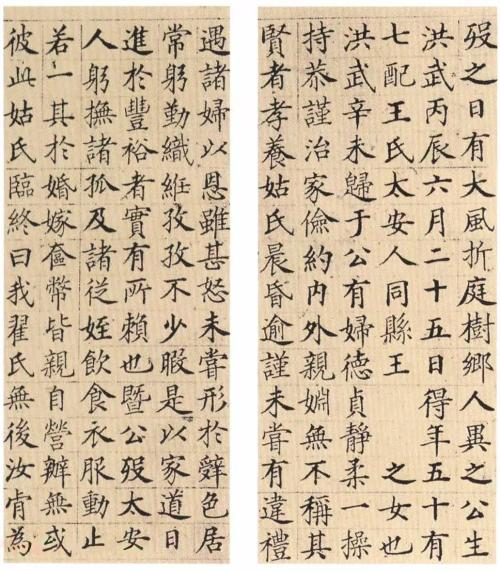 歿之日有大風折庭樹鄉人異之公生
洪武丙辰六月二十五日得年五十有
七配王氏太安人同縣王 之女也
洪武辛未歸于公有婦德貞靜柔一操
持恭謹治家儉約內外親婣無不稱其
賢者孝養姑氏晨昏逾謹未甞有違禮
遇諸婦以恩雖甚怒未甞形於辭色居
常躬勤織絍孜孜不少暇是以家道日
進於豐裕者實有所賴也暨公歿太安
人躬撫諸孤及諸從姪飲食衣服動止
若一其於婚嫁奩幣皆親自營辦無或
彼此姑氏臨終曰我翟氏無後汝肯為